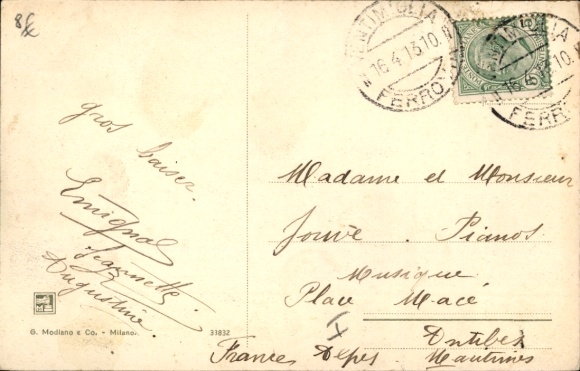 8f
VENTIMIGLIA
16.4.13 10.
FERROVIA
VENTIMIGLIA
16.4.13 10.
FERR
gros baiser.
Emignol
Jeannette
Augustine.
Madame et Monsieur
Jouve. Pianos
Musique
Place Macé
Antibes
France Alpes Maritimes
G. Modiano e Co. - Milano.
31832